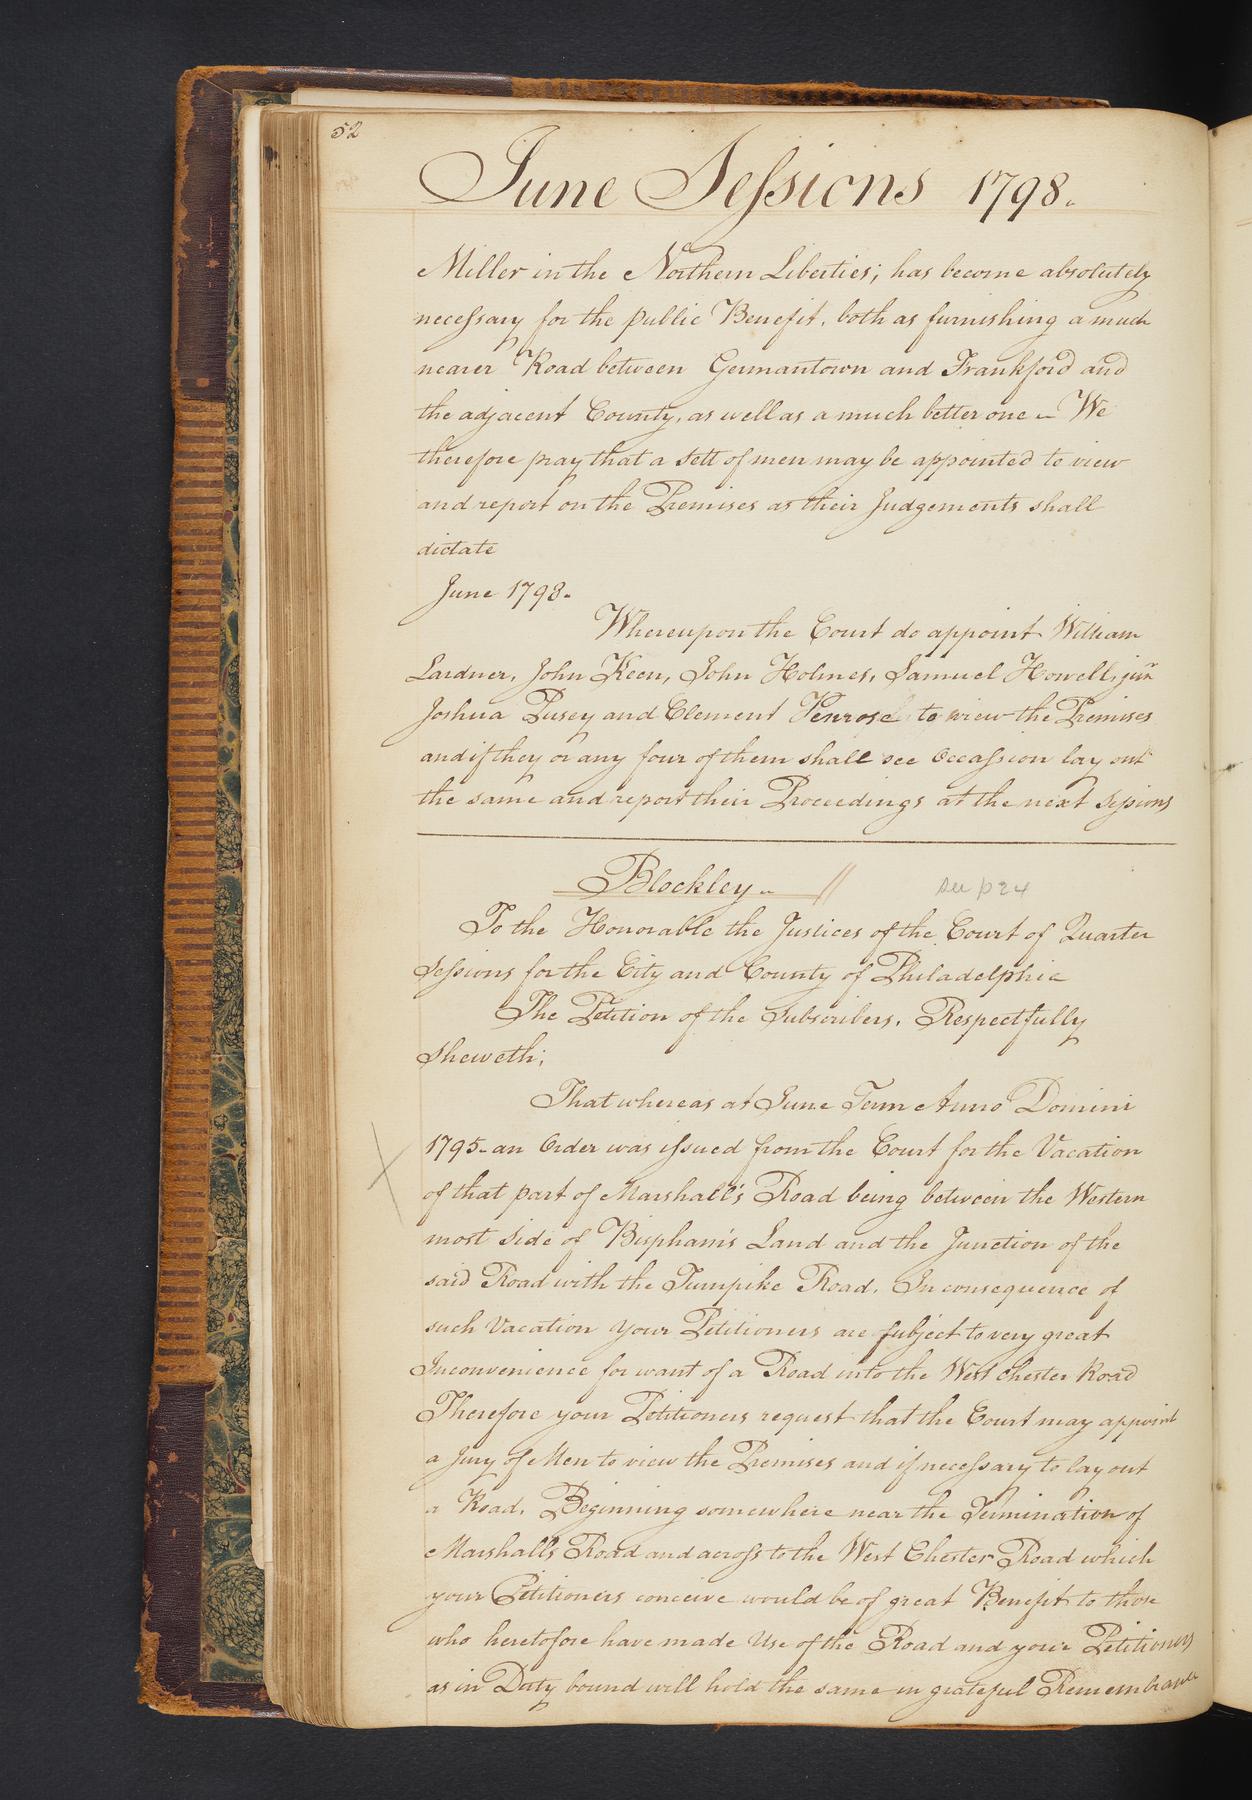 52
June Sessions 1798.
Miller in the Northern Liberties; has become absolutely
necessary for the public Benefit, both as furnishing a much
nearer Road between Germantown and Frankford and
the adjacent County, as well as a much better one – We
therefore pray that a sett of men may be appointed to view
and report on the Premises as their Judgements shall
dictate
June 1798.
Whereupon the Court do appoint William
Lardner, John Keen, John Holmes, Samuel Howell, junr
Joshua Pusey and Clement Penrose to view the Premises
and if they or any four of them shall see Occassion lay out
the same and report their Proceedings at the next Sessions
Blockley – //
see p 24
To the Honorable the Justices of the Court of Quarter
Sessions for the City and County of Philadelphia
The Petition of the Subscribers, Respectfully
Sheweth;
That whereas at June Term Anno Domini
1795 – an Order was issued from the Court for the Vacation
of that part of Marshall's Road being between the Western
most Side of Bispham's Land and the Junction of the
said Road with the Turnpike Road. In consequence of
such Vacation your Petitioners are subject to very great
Inconvenience for want of a Road into the West Chester Road
Therefore your Petitioners request that the Court may appoint
a Jury of Men to view the Premises and if necessary to lay out
a Road, Beginning somewhere near the Termination of
Marshalls Road and across to the West Chester Road which
your Petitioners conceive would be of great Benefit to those
who heretofore have made Use of the Road and your Petitioners
as in Duty bound will hold the same in grateful Remembrance